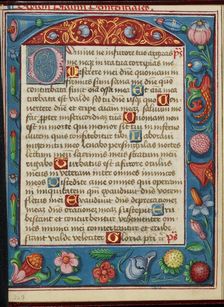 Psalmi Penitentiales
Domine ne in furore tuo arguas
me neque in ira tua corripias me
Miserere mei domine quoniam
infirmus sum sana me domine quoniam
conturbata sunt ossa mea Et anima mea
turbata est valde sed tu domine usquequo Convertere
domine et eripe animam meam salvum me
fac propter misericordiam tuam Quoniam
non est in morte qui memor sit tui in inferno
autem quis confitebitur tibi Laboravi
in gemitu meo lavabo per singulas noctes
lectum meum lacrimis meis stratum meum
rigabo Turbatus est a furore oculus
meus inveteravi inter omnes inimicos
meos Discedite a me omnes qui operamini
iniquitatem quoniam exaudivit dominus vocem
fletus mei Exaudivit dominus deprecationem
meam dominus orationem meam suscepit Erubescant
et conturbentur vehementer
omnes inimici mei convertantur et erubes
cant valde velociter Gloria pri et